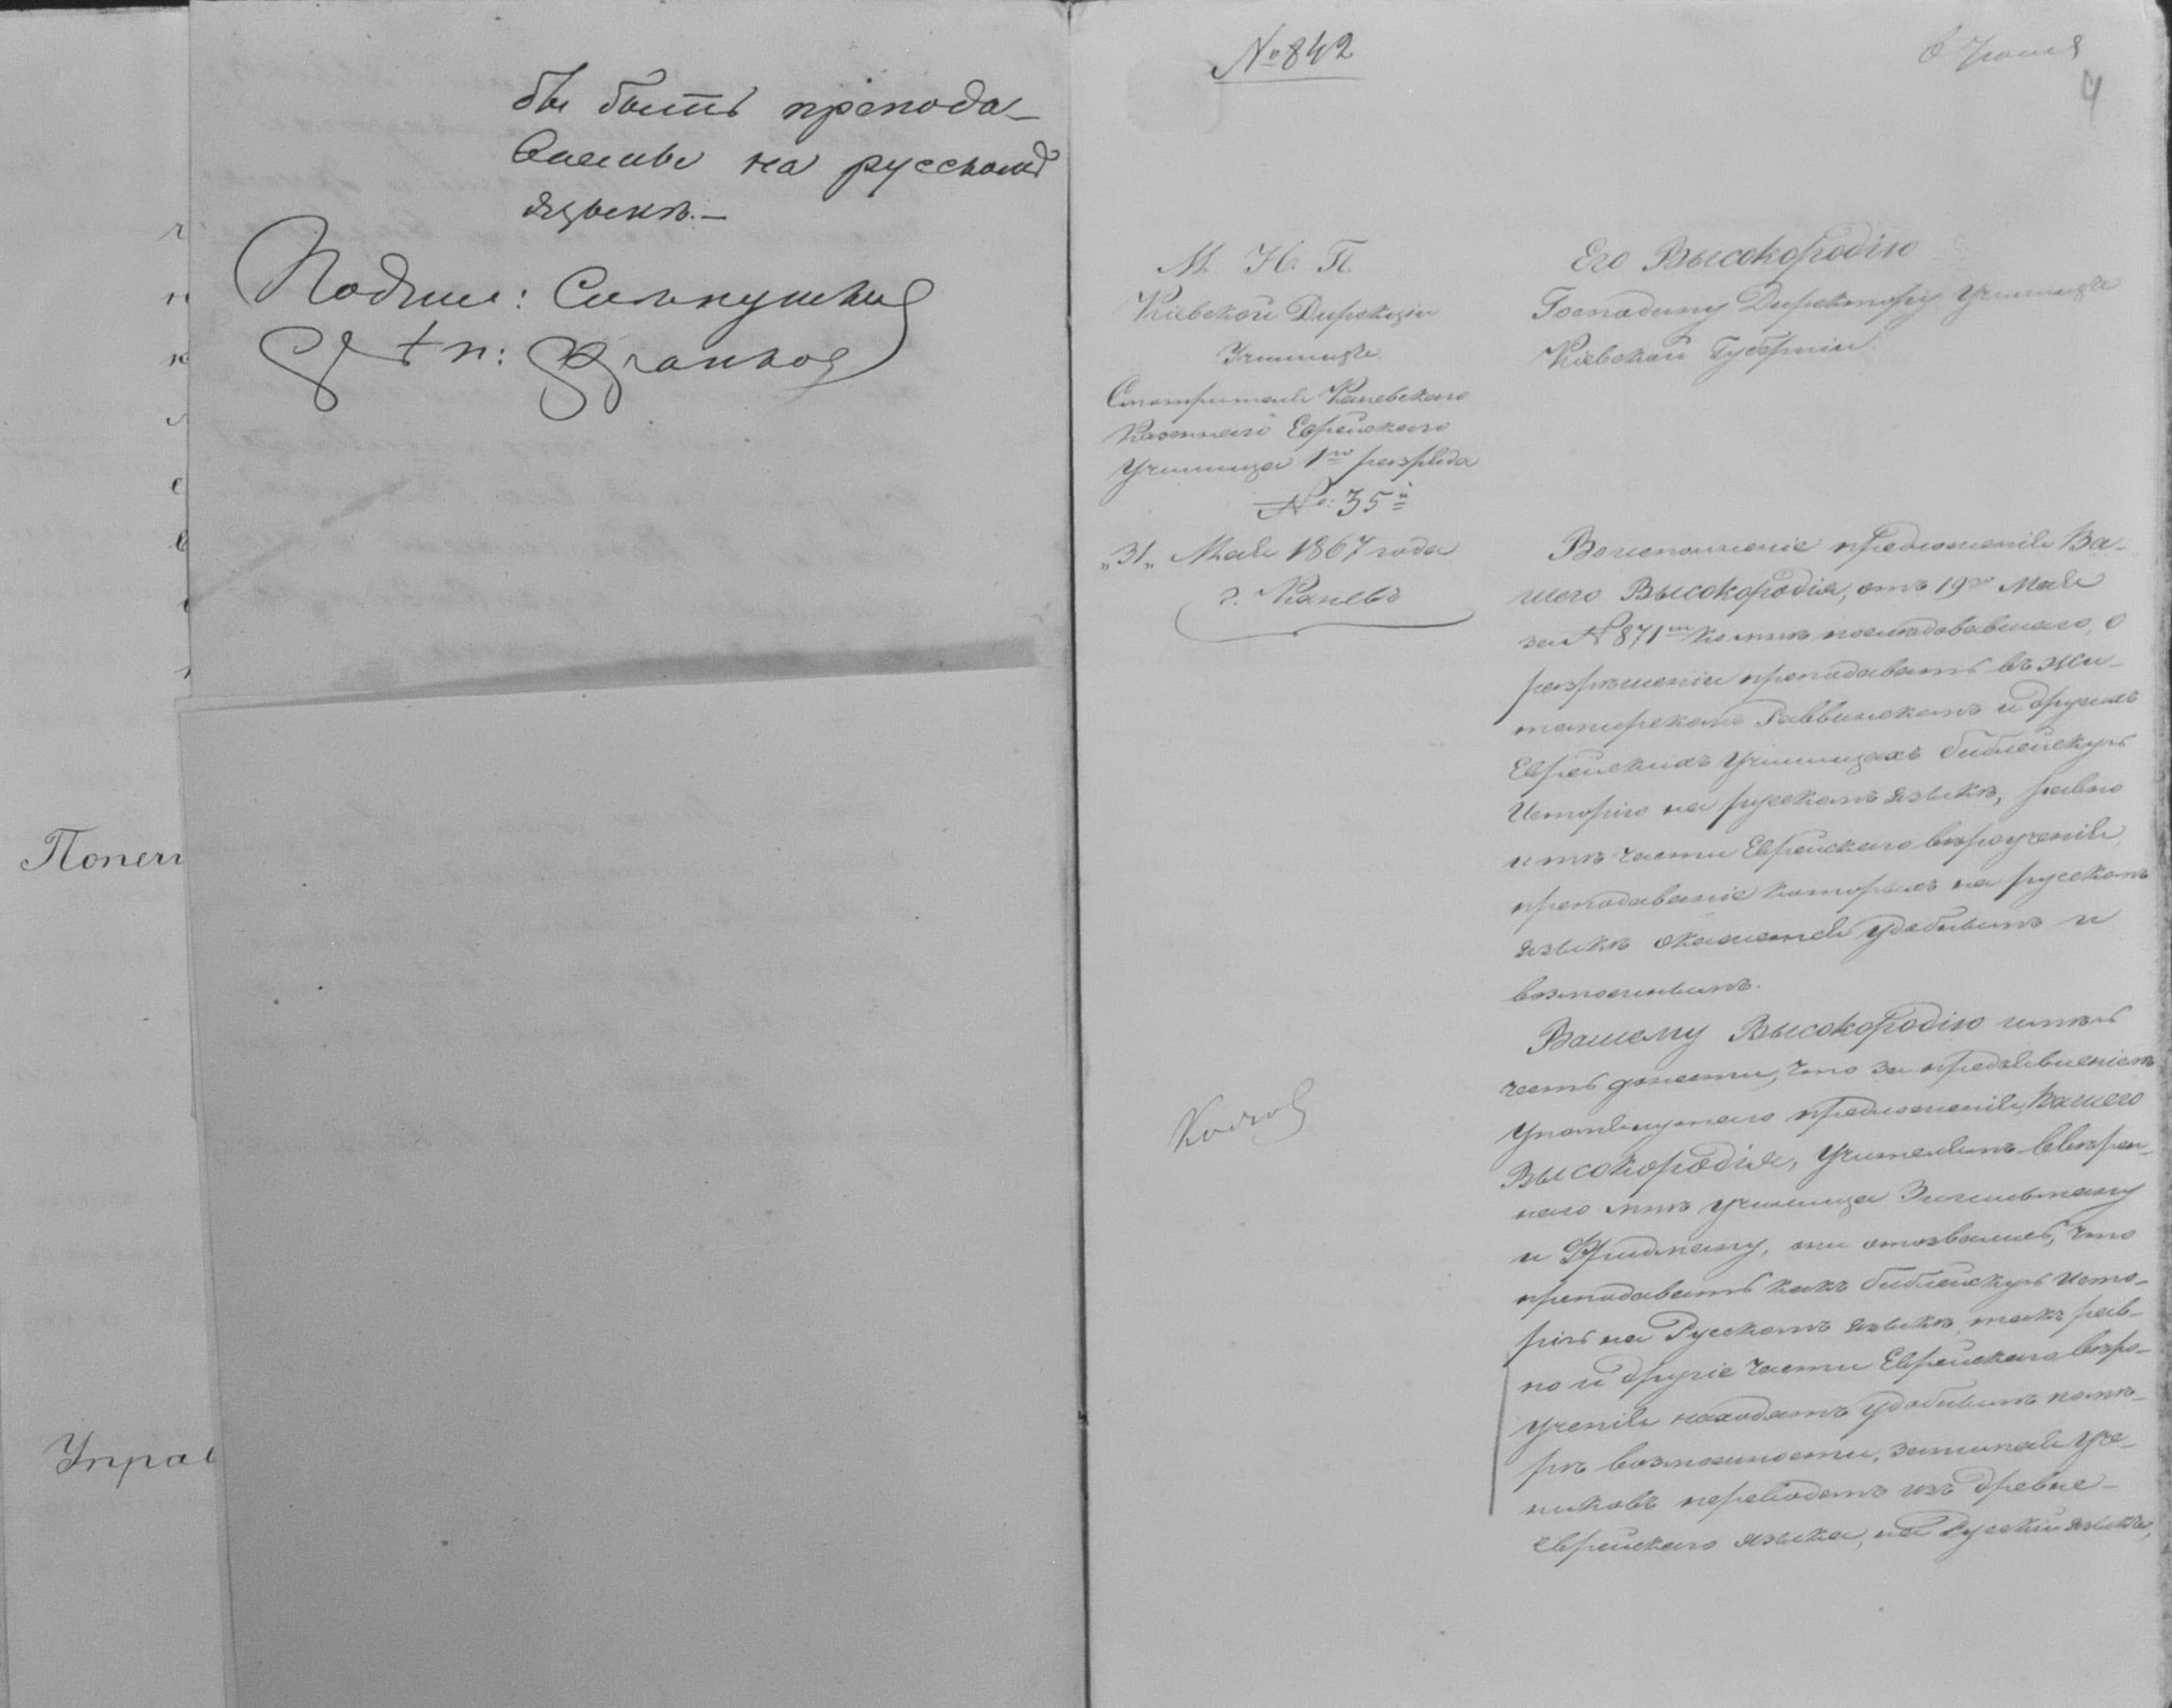 бы быть препода-
ваемы на русскомъ
языкѣ.—
Подпис:
Попеч
Управ
№ 842
6 Іюня
4
М. Н. П.
Кіевской Дирекціи
Училищъ
Смотрителя Каневскаго
Казеннаго Еврейскаго
Училища 1го разряда
№: 35й
„31„ Мая 1867 года
г. Каневъ
Его Высокородію
Господину Директору Училищъ
Кіевской Губерніи
Во исполненіе предложенія Ва-
шего Высокородія, отъ 19го Мая
за № 871мъ ко мнѣ послѣдовавшаго, о
разрѣшеніи преподавать въ Жи-
томирскомъ Раввинскомъ и другихъ
Еврейскихъ Училищахъ библейскую
Исторію на русскомъ языкѣ, равно
и тѣ части Еврейскаго вѣроученія,
преподаваніе которыхъ на русскомъ
языкѣ окажется удобнымъ и
возможнымъ.
Вашему Высокородію имѣю
честь донести, что за предъявленіемъ
упомянутаго предложенія Вашего
Высокородія, Учителямъ ввѣрен-
наго мнѣ училища Зигельману
и Фридману, они отозвались, что
преподавать какъ библейскую исто-
рію на Русскомъ языкѣ, такъ рав-
но и другіе части Еврейскаго вѣро-
ученія находятъ удобнымъ по мѣ-
рѣ возможности, занимая уче-
никовъ переводомъ изъ древне-
еврейскаго языка, на Русскій языкъ,